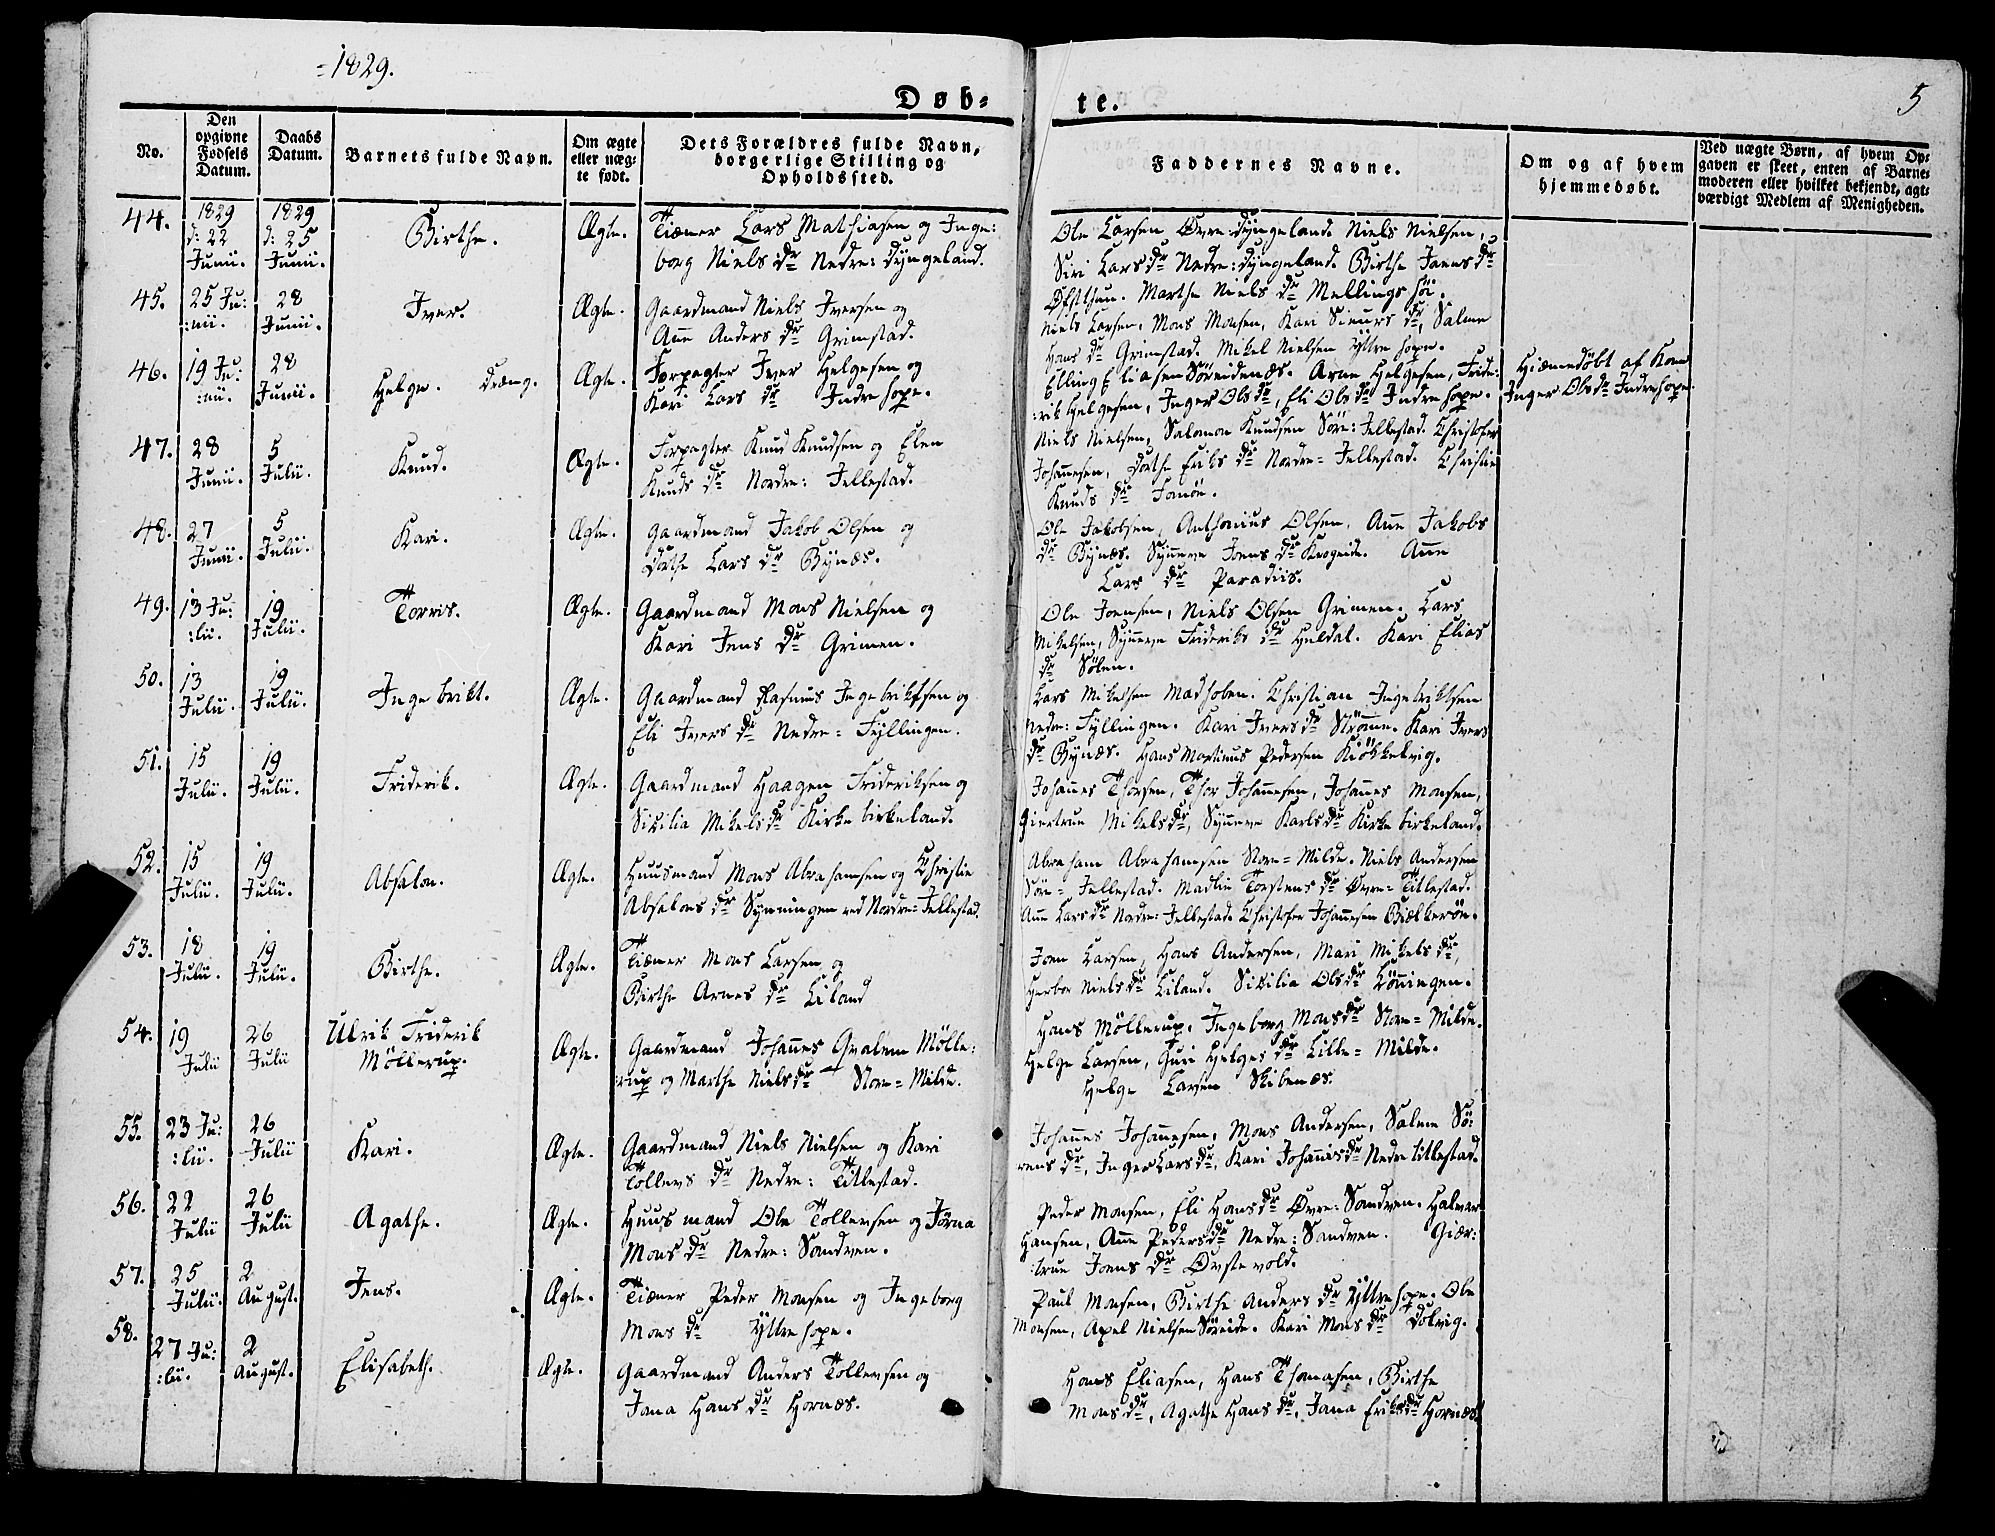 1829.
Døb-
te.
5
No.
Den
opgivne
Fødsels
Datum.
Daabs
Datum.
Barnets fulde Navn.
Om ægte
eller uæg-
te født.
Dets Forældres fulde Navn,
borgerlige Stilling og
Opholdssted.
Faddernes Navne.
Om og af hvem
hjemmedøbt.
Ved uægte Børn, af hvem Op-
gaven er skeet, enten af Barne-
moderen eller hvilket bekjendt, agt-
værdigt Medlem af Menigheden.
44.
1829
d: 22
Junii.
1829
d: 25
Junii.
Birthe.
Ægte.
Tiæner Lars Mathiasen og Inge:
borg Niels dr Nedre: Dyngeland.
Ole Larsen Øvre Dyngeland. Niels Nielsen,
Siri Lars dr Nedre: Dyngeland. Birthe Joens dr
Øfsthun. Marthe Niels dr Mellingshöi.
45.
25 Ju:
:nii.
28
Junii.
Iver.
Ægte.
Gaardmand Niels Iversen og
Ane Anders dr Grimstad.
Niels Larsen, Mons Monsen, Kari Siurs dr, Salme
Hans dr Grimstad. Mikel Nielsen Yttrehope.
46.
19 Ju:
:nii.
28
Junii.
Helge. Dreng.
Ægte.
Forpagter Iver Helgesen og
Kari Lars dr Indrehope.
Elling Eliasen Söreidenæs. Arne Helgesen, Fride:
:rik Helgesen, Inger Ols dr, Eli Ols dr Indrehope.
Hiemedöbt af Kone
Inger Ols dr Indrehope.
47.
28
Junii.
5
Julii.
Knud.
Ægte.
Forpagter Knud Knudsen og Elen
Knuds dr Nordre: Jellestad.
Niels Nielsen, Salamon Knudsen Söre: Jellestad. Christofer
Johanesen, Dorthe Eriks dr Nordre= Jellestad. Christie
Knuds dr
48.
27
Junii.
5
Julii.
Kari.
Ægte.
Gaardmand Jakob Olsen og
Dorthe Lars dr Bynæs.
Ole Jakobsen, Anthonius Olsen, Ane Jakobs
dr Bynæs. Syneve Joens dr Krogeide. Ane
Lars dr Paradiis.
49.
13 Ju:
:lii.
19
Julii.
Torris.
Ægte.
Gaardmand Mons Nielsen og
Kari Jens dr Grimen.
Ole Joensen, Niels Olsen Grimen. Lars
Mikelsen, Syneve Frideriks dr Huldal. Kari Elias
dr Sölen.
50.
13
Julii.
19
Julii.
Ingebrikt.
Ægte.
Gaardmand Rasmus Ingebriktsen og
Eli Ivers dr Nedre= Fyllingen.
Lars Mikelsen Madhoben. Christian Ingebriktsen
Nedre: Fyllingen. Kari Ivers dr Strömme. Kari Ivers
dr Bynæs. Hans Martinus Pedersen Kiökkelvig.
51.
15
Julii.
19
Julii.
Friderik.
Ægte.
Gaardmand Haagen Frideriksen og
Sisilia Mikels dr Kirkebirkeland.
Johanes Thorsen, Thor Johanesen, Johanes Monsen,
Giertrue Mikels dr, Syneve Karls dr Kirkebirkeland.
52.
15
Julii.
19
Julii.
Absalon.
Ægte.
Huusmand Mons Abrahamsen og Christie
Absalons dr Synningen ved Nordre= Jellestad.
Abraham Abrahamsen Store= Milde. Niels Andersen
Söre= Jellestad. Madlin Torstens dr Øvre= Titlestad.
Ane Lars dr Nedre: Jellestad. Christofer Johanesen Bielkeröe.
53.
18
Julii.
19
Julii.
Birthe.
Ægte.
Tiæner Mons Larsen og
Birthe Arnes dr Liland
Joen Larsen, Hans Andersen, Mari Mikels dr,
Herbor Niels dr Liland. Sisilia Ols dr Lönningen.
54.
19
Julii
26
Julii
Ulrik Friderik
Möllerup.
Ægte.
Gaardmand Johanes Qvalem Mölle:
:rup og Marthe Niels dr Store= Milde.
Hans Möllerup. Ingeborg Mons dr Store= Milde.
Helge Larsen, Guri Helges dr Lille= Milde.
Helge Larsen Skibenæs.
55.
23 Ju:
:lii.
26
Julii
Kari.
Ægte.
Gaardmand Niels Nielsen og Kari
Tollevs dr Nedre: Titlestad.
Johanes Johanesen, Mons Andersen, Salme Sö:
rens dr, Inger Lars dr, Kari Johanis dr Nedre Titlestad.
56.
22
Julii
26
Julii
Agathe.
Ægte.
Huusmand Ole Tollevsen og Jörna
Mons dr Nedre: Sandven.
Peder Monsen, Eli Hans dr Øvre: Sandven. Halvor
Hansen, Ane Peders dr Nedre: Sandven. Giær:
:true Joens dr Øvstevold.
57.
25
Julii.
2
August.
Jens.
Ægte.
Tiæner Peder Monsen og Ingeborg
Mons dr Yttrehope.
Paul Monsen, Birthe Anders dr Yttrehope. Ole
Monsen, Axel Nielsen Söreide. Kari Mons dr Dolvig.
58.
27 Ju:
:lii.
2
August.
Elisabeth.
Ægte.
Gaardmand Anders Tollevsen og
Jana Hans dr Hornæs.
Hans Eliasen, Hans Thomasen, Birthe
Mons dr, Agathe Hans dr, Jana Eriks dr Hornæs.